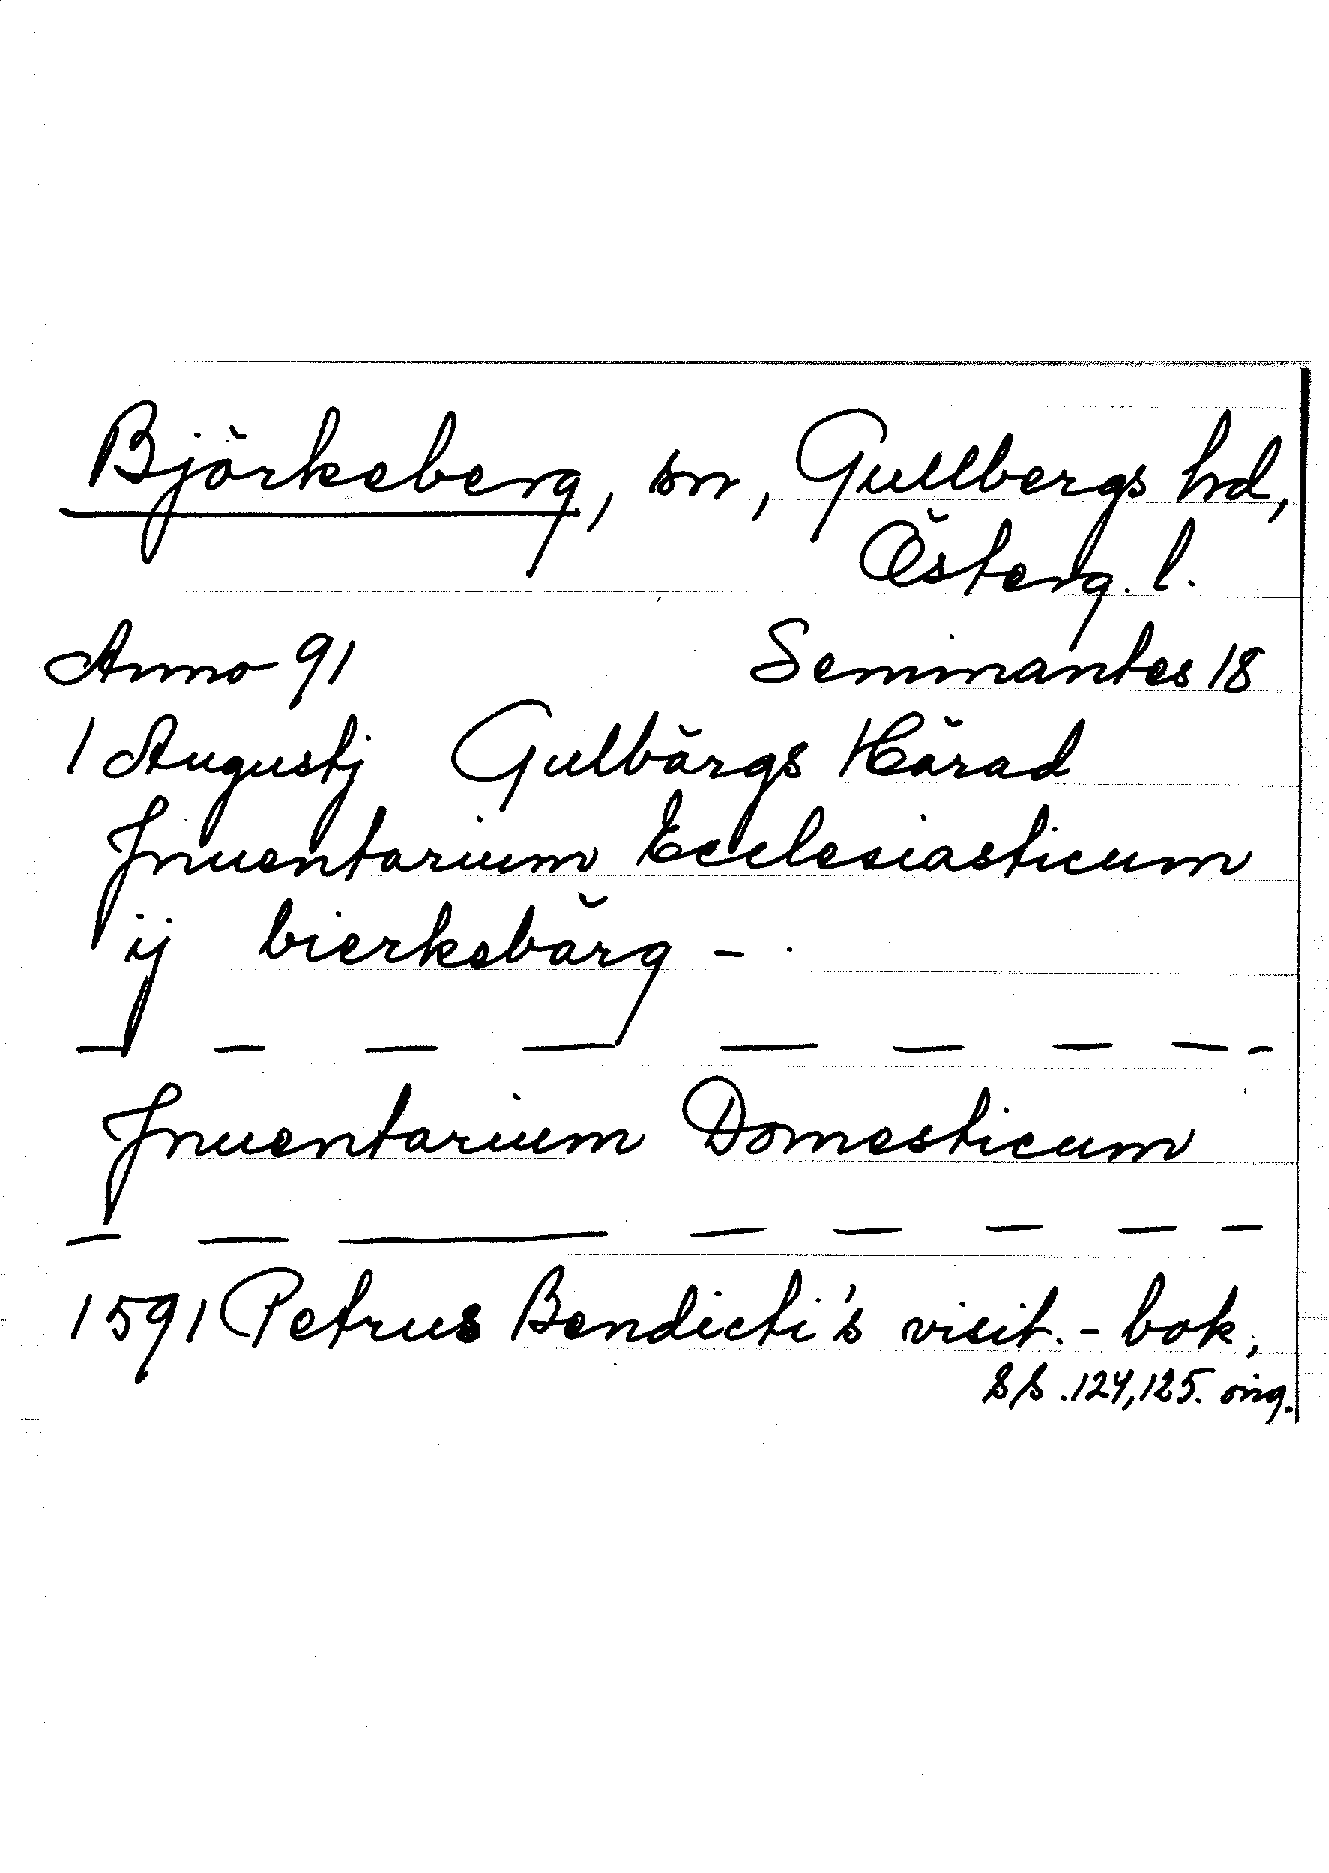 Björkeberg, sn, Gullbergs hd,
Österg. l.
Anno 91 Seminantes 18
1 Augustj Gulbärgs Härad
Jnuentarium Ecclesiasticum
ij bierkebärg - .
— — — — — — — — -
Jnuentarium Domesticum
— — — — — — — —
1591 Petrus Bendicti's visit. - bok,
ss. 124, 125. orig.